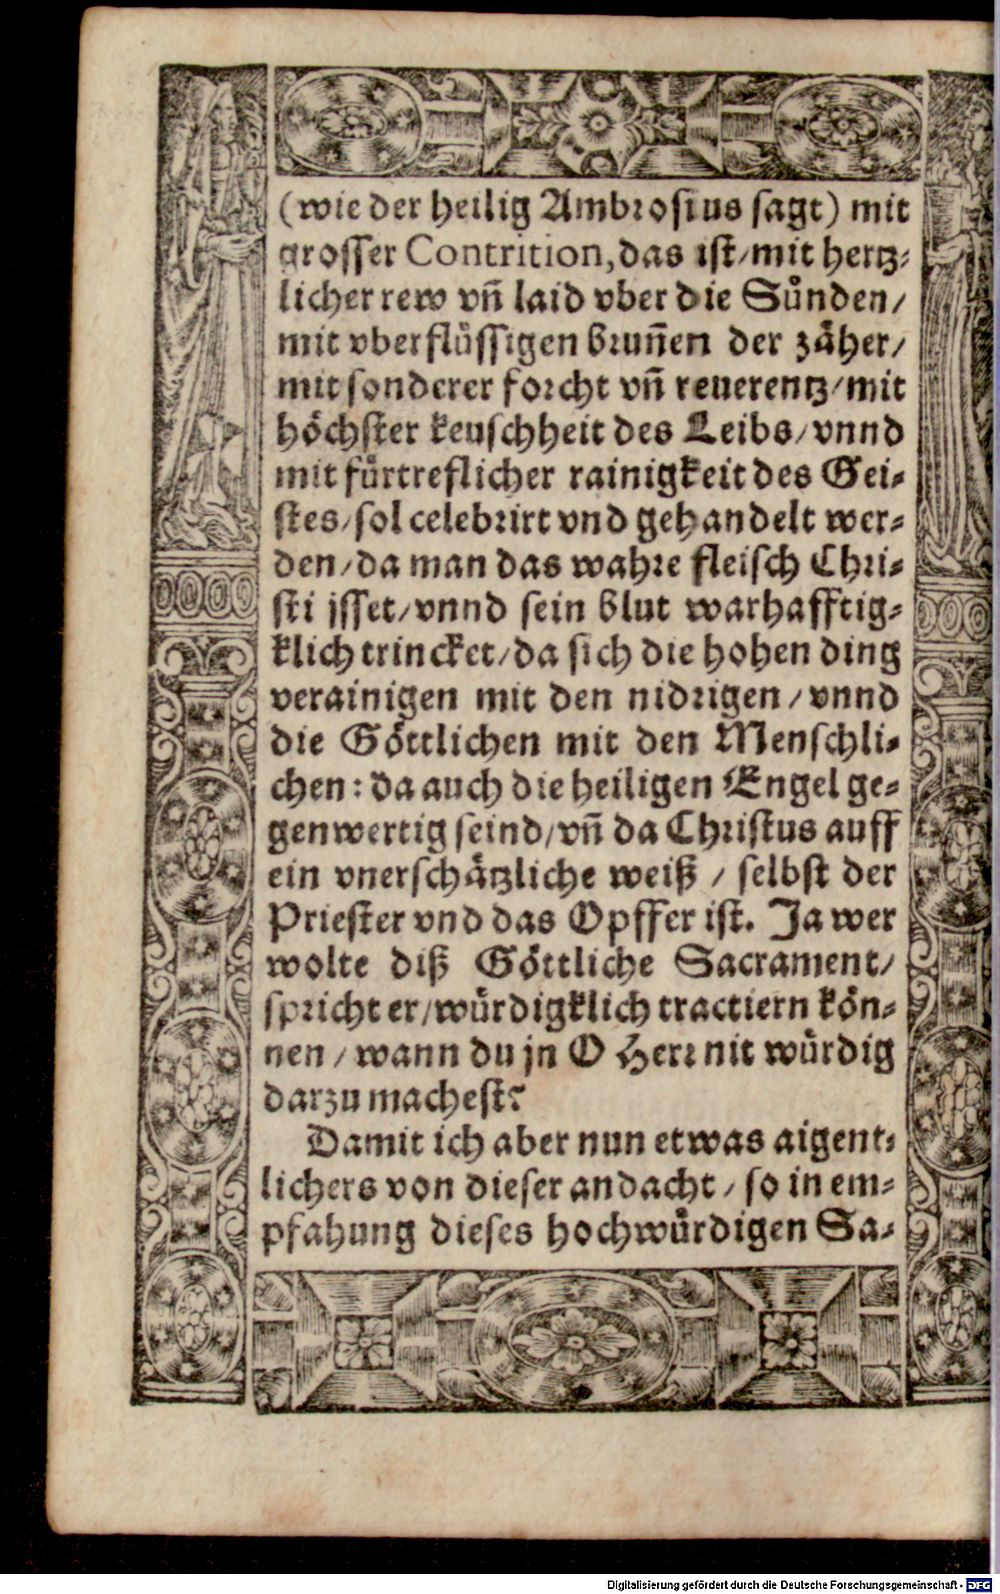 (wie der heilig Ambrosius sagt) mit
grosser Contrition, das ist/mit hertz⸗
licher rew vñ laid vber die Suͤnden/
mit vberflüssigen brunnen der zäher/
mit sonderer forcht vñ reuerentz/mit
höchster keuschheit des Leibs/vnnd
mit fuͤrtreflicher rainigkeit des Gei⸗
stes/sol celebrirt vnd gehandelt wer⸗
den/da man das wahre fleisch Chri⸗
sti jsset/vnnd sein blut warhafftig⸗
klich trincket/da sich die hohen ding
verainigen mit den nidrigen/vnnd
die Göttlichen mit den Menschli⸗
chen: da auch die heiligen Engel ge⸗
genwertig seind/vñ da Christus auff
ein vnerschätzliche weiß/selbst der
Priester vnd das Opffer ist. Ja wer
wolte diß Göttliche Sacrament/
spricht er/wuͤrdigklich tractiern kön⸗
nen/wann du jn O Herr nit wuͤrdig
darzu machest?
Damit ich aber nun etwas aigent⸗
lichers von dieser andacht/so in em⸗
pfahung dieses hochwuͤrdigen Sa⸗
Digitalisierung gefördert durch die Deutsche Forschungsgemeinschaft - DFG